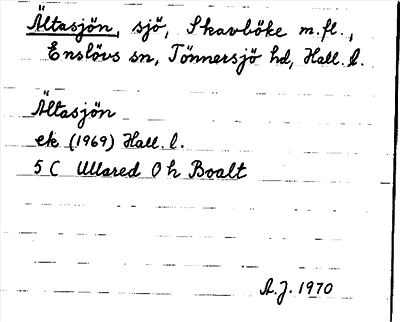 Ältasjön, sjö, Skavböke m.fl.,
Enslövs sn, Tönnersjö hd, Hall. l.
Ältasjön
ek (1969) Hall. l.
5 C Ullared 0 h Boalt
A.J. 1970